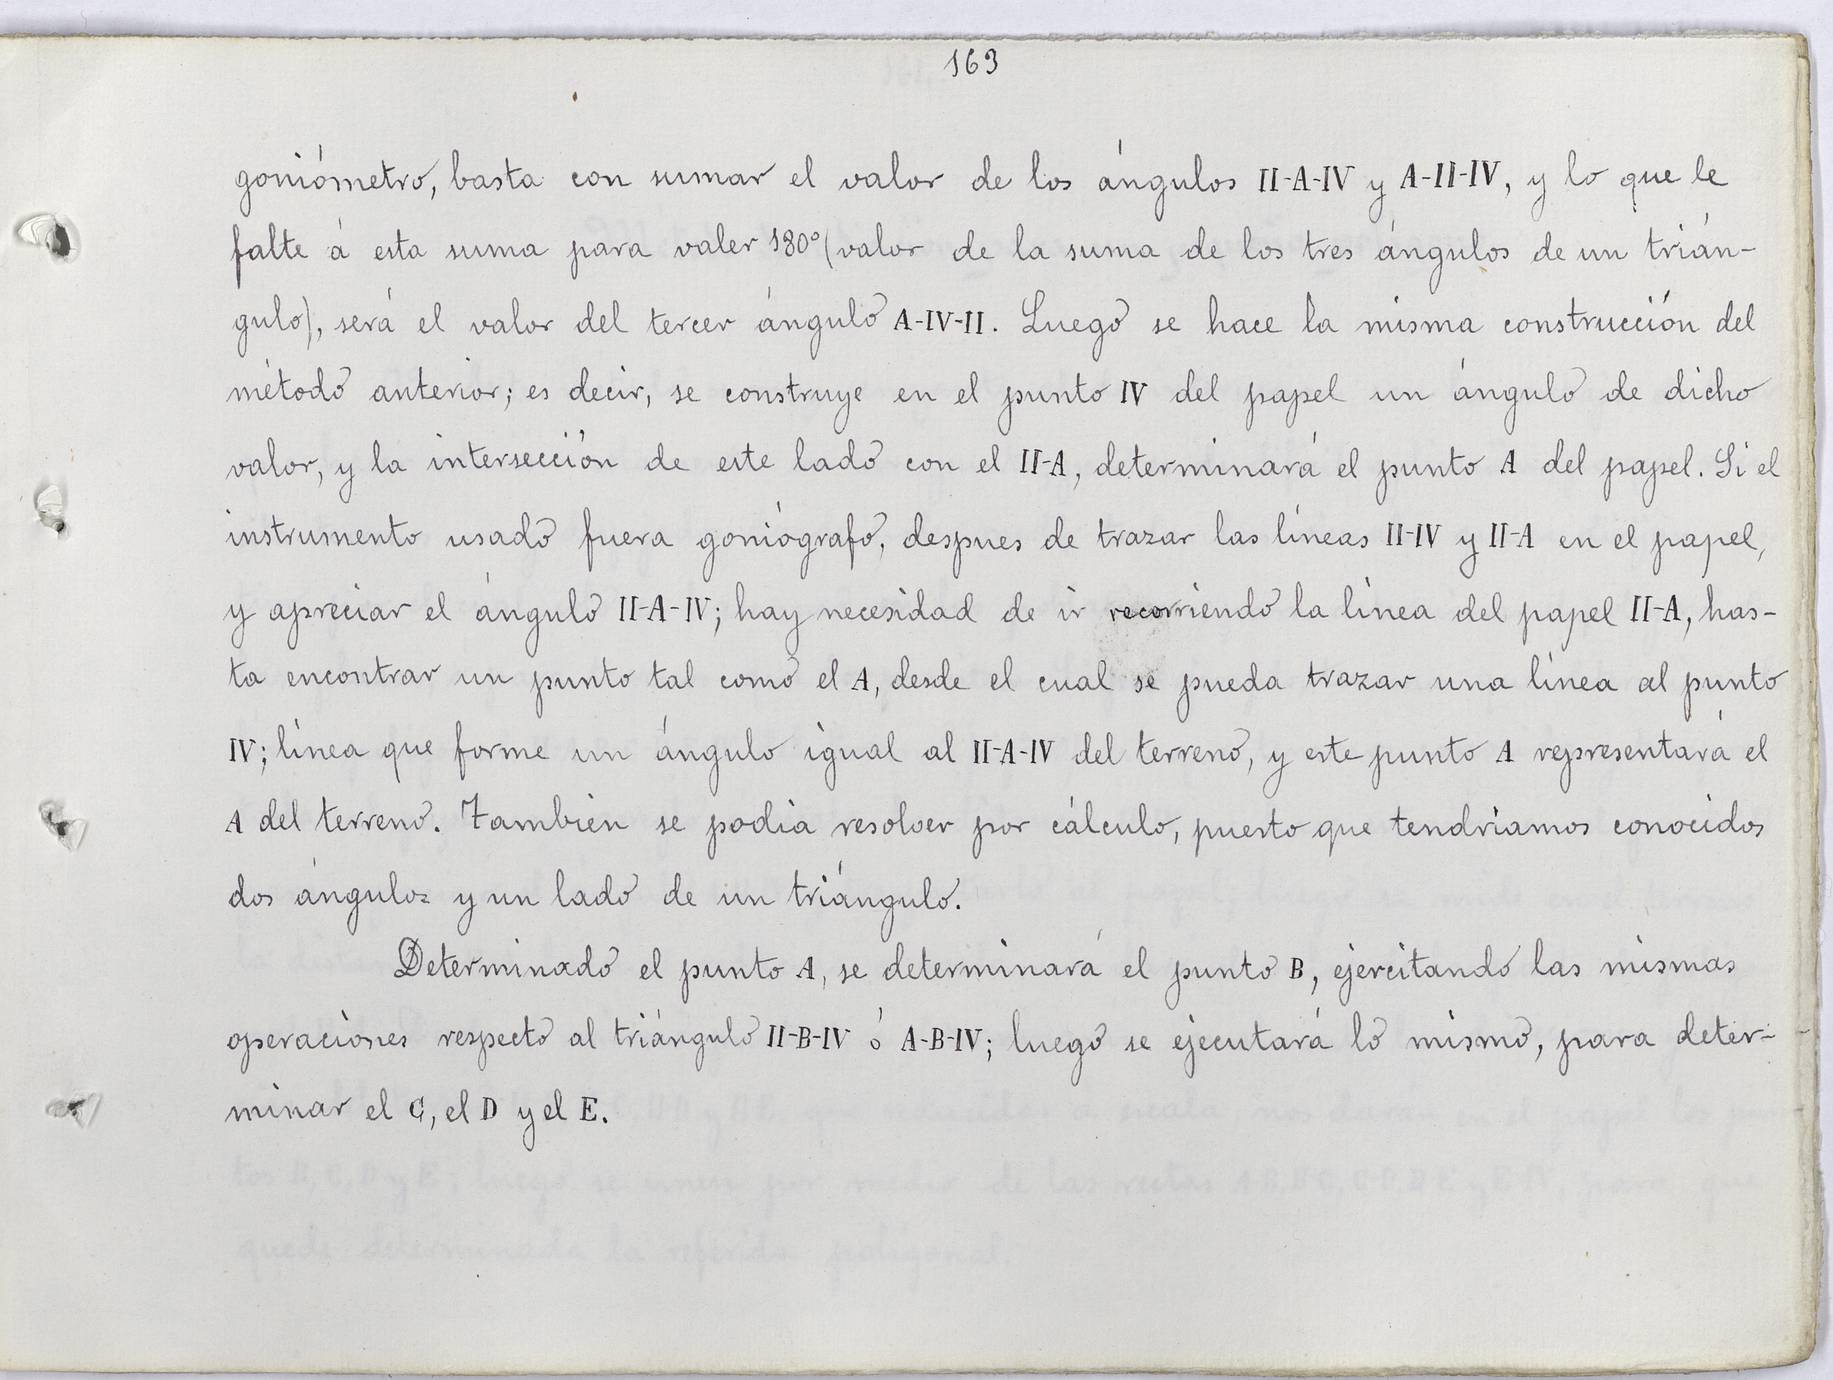 163
goniómetro, basta con sumar el valor de los ángulos II-A-IV y A-II-IV, y lo que le
falte á esta suma para valer 180° (valor de la suma de los tres ángulos de un trián-
gulo), será el valor del tercer ángulo A-IV-II. Luego se hace la misma construcción del
método anterior; es decir, se construye en el punto IV del papel un ángulo de dicho
valor, y la intersección de este lado con el II-A, determinará el punto A del papel. Si el
instrumento usado fuera goniógrafo, despues de trazar las líneas II-IV y II-A en el papel,
y apreciar el ángulo II-A-IV; hay necesidad de ir recorriendo la línea del papel II-A, has-
ta encontrar un punto tal como el A, desde el cual se pueda trazar una línea al punto
IV; línea que forme un ángulo igual al II-A-IV del terreno, y este punto A representará el
A del terreno. Tambien se podia resolver por cálculo, puesto que tendríamos conocidos
dos ángulos y un lado de un triángulo.
Determinado el punto A, se determinará el punto B, ejercitando las mismas
operaciones respecto al triángulo II-B-IV ó A-B-IV; luego se ejecutará lo mismo, para deter-
minar el C, el D y el E.